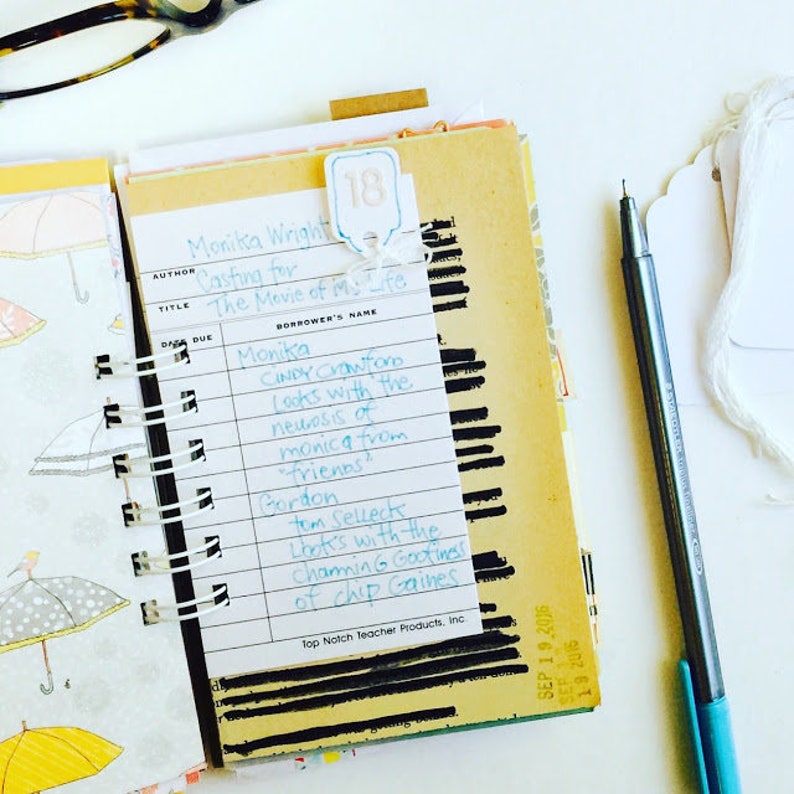 18
Monika Wright
AUTHOR Casting for
TITLE The Movie of My Life
DATE DUE BORROWER'S NAME
Monika
Cindy Crawford
Looks with the
neurosis of
monica from
"friends"
Gordon
tom selleck
Looks with the
charming Goofiness
of chip Gaines
Top Notch Teacher Products, Inc.
SEP 19 2016
SEP 19 2016
was getting